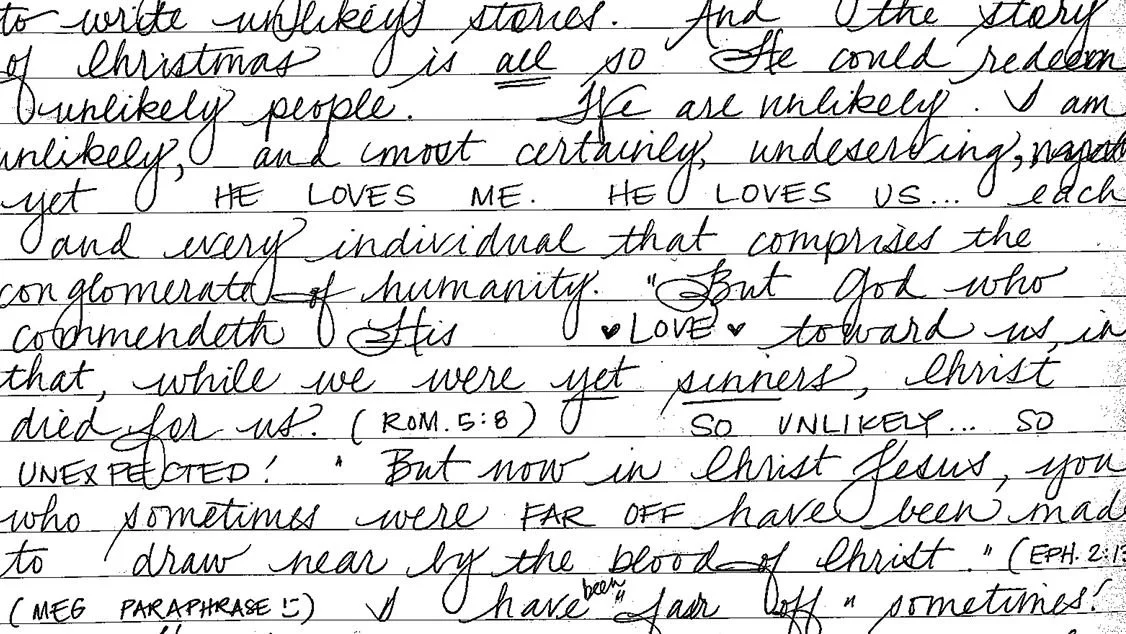 to write unlikely stories. And the story
of Christmas is all so He could redeem
unlikely people. We are unlikely. I am
unlikely, and most certainly, undeserving,
yet HE LOVES ME. HE LOVES US... each
and every individual that comprises the
conglomerate of humanity. "But God who
commendeth His ♥ LOVE ♥ toward us, in
that, while we were yet sinners, Christ
died for us." (ROM. 5:8) SO UNLIKELY... SO
UNEXPECTED! "But now in Christ Jesus, you
who sometimes were FAR OFF have been made
to draw near by the blood of Christ." (EPH. 2:13
(MEG PARAPHRASE!) I have been "far off" sometimes!